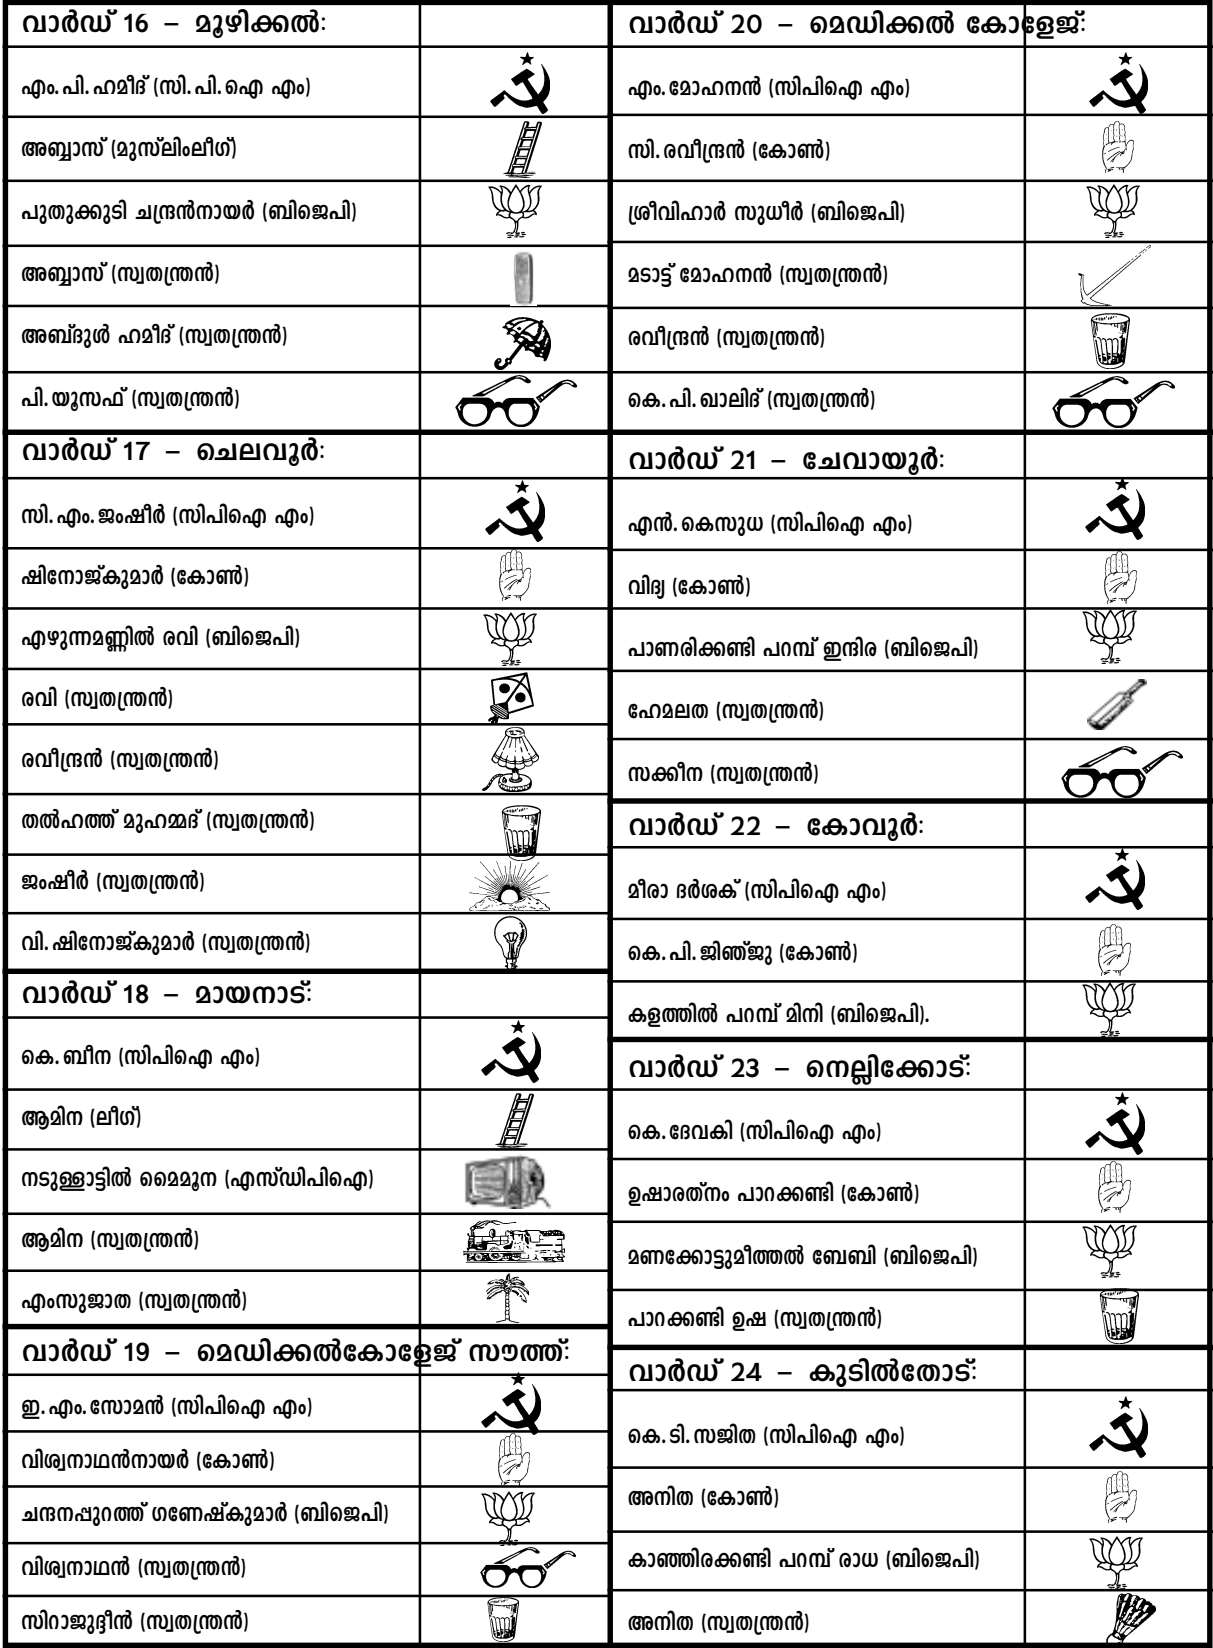 വാർഡ് 16 – മൂഴിക്കൽ:
എം.പി.ഹമീദ് (സി.പി.ഐ എം)
അബ്ബാസ് (മുസ്‌ലിംലീഗ്)
പുതുക്കുടി ചന്ദ്രൻനായർ (ബിജെപി)
അബ്ബാസ് (സ്വതന്ത്രൻ)
അബ്ദുൾ ഹമീദ് (സ്വതന്ത്രൻ)
പി.യൂസഫ് (സ്വതന്ത്രൻ)
വാർഡ് 17 – ചെലവൂർ:
സി.എം.ജംഷീർ (സിപിഐ എം)
ഷിനോജ്കുമാർ (കോൺ)
എഴുന്നമണ്ണിൽ രവി (ബിജെപി)
രവി (സ്വതന്ത്രൻ)
രവീന്ദ്രൻ (സ്വതന്ത്രൻ)
തൽഹത്ത് മുഹമ്മദ് (സ്വതന്ത്രൻ)
ജംഷീർ (സ്വതന്ത്രൻ)
വി.ഷിനോജ്കുമാർ (സ്വതന്ത്രൻ)
വാർഡ് 18 – മായനാട്:
കെ.ബീന (സിപിഐ എം)
ആമിന (ലീഗ്)
നടുള്ളാട്ടിൽ മൈമൂന (എസ്ഡിപിഐ)
ആമിന (സ്വതന്ത്രൻ)
എംസുജാത (സ്വതന്ത്രൻ)
വാർഡ് 19 – മെഡിക്കൽകോളേജ് സൗത്ത്:
ഇ.എം.സോമൻ (സിപിഐ എം)
വിശ്വനാഥൻനായർ (കോൺ)
ചന്ദനപ്പുറത്ത് ഗണേഷ്കുമാർ (ബിജെപി)
വിശ്വനാഥൻ (സ്വതന്ത്രൻ)
സിറാജുദ്ദീൻ (സ്വതന്ത്രൻ)
വാർഡ് 20 – മെഡിക്കൽ കോളേജ്:
എം.മോഹനൻ (സിപിഐ എം)
സി.രവീന്ദ്രൻ (കോൺ)
ശ്രീവിഹാർ സുധീർ (ബിജെപി)
മടാട്ട് മോഹനൻ (സ്വതന്ത്രൻ)
രവീന്ദ്രൻ (സ്വതന്ത്രൻ)
കെ.പി.ഖാലിദ് (സ്വതന്ത്രൻ)
വാർഡ് 21 – ചേവായൂർ:
എൻ.കെസുധ (സിപിഐ എം)
വിദ്യ (കോൺ)
പാണരിക്കണ്ടി പറമ്പ് ഇന്ദിര (ബിജെപി)
ഹേമലത (സ്വതന്ത്രൻ)
സക്കീന (സ്വതന്ത്രൻ)
വാർഡ് 22 – കോവൂർ:
മീരാ ദർശക് (സിപിഐ എം)
കെ.പി.ജിഞ്ജു (കോൺ)
കളത്തിൽ പറമ്പ് മിനി (ബിജെപി).
വാർഡ് 23 – നെല്ലിക്കോട്:
കെ.ദേവകി (സിപിഐ എം)
ഉഷാരത്‌നം പാറക്കണ്ടി (കോൺ)
മണക്കോട്ടുമീത്തൽ ബേബി (ബിജെപി)
പാറക്കണ്ടി ഉഷ (സ്വതന്ത്രൻ)
വാർഡ് 24 – കുടിൽതോട്:
കെ.ടി.സജിത (സിപിഐ എം)
അനിത (കോൺ)
കാഞ്ഞിരക്കണ്ടി പറമ്പ് രാധ (ബിജെപി)
അനിത (സ്വതന്ത്രൻ)